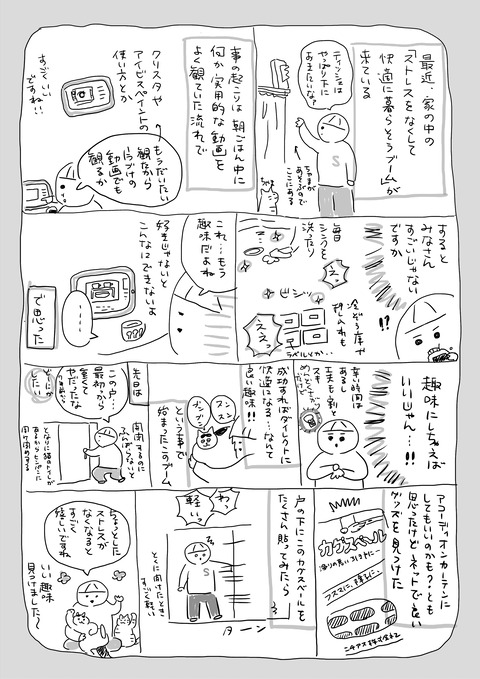 最近、家の中の
「ストレスをなくして
快適に暮らそうブーム」が
来ている
ティッシュは
やっぱり下に
あきたいな?
ちゃまが
あそぶので
ここにある
事の起こりは 朝ごはん中に
何か実用的な動画を
よく観ていた流れで
クリスタや
アイビスペイントの
使い方とか
すごくいい
ですね!!
もうだいたい
観たから
片づけの
動画でも
観るか
すると
みなさん
すごいじゃない
ですか
!?
毎日
シンクを
洗ったり
えぇ
ピシッ
冷ぞう庫や
押し入れも
ラベルとか…
えぇっ
これ…もう
趣味だよね
好きじゃないと
こんなにできないよ
で思った
趣味にしちゃえば
いいじゃん…!!
辛い時間は
あるし
工夫も割と
スキ
めんどくさがり
だけど
成功すればダイレクトに
快適になる…なんて
良い趣味!!
フンスン
ブンブン
という事で
始まったこのブーム
先日は
開閉するのに
ふんばらないと
この戸…
最初から
重くて
やだったな
どうにか
したい
となりに猫のトイレが
あるからしょっちゅう
開け閉めする
アコーディオンカーテンに
してもいいのかも?とも
思ったけどネットで良い
グッズを見つけた
カグスベール
滑りの悪い引き戸に…
フスマに、障子に…
ニチアス株式会社
戸の下にこのカグスベールを
たくさん貼ってみたら…
わ
軽いっ
とくに開けたとき
すごく軽い
ターン
ちょっとした
ストレスが
なくなると
すごく
嬉しいですね
いい趣味
見つけました〜